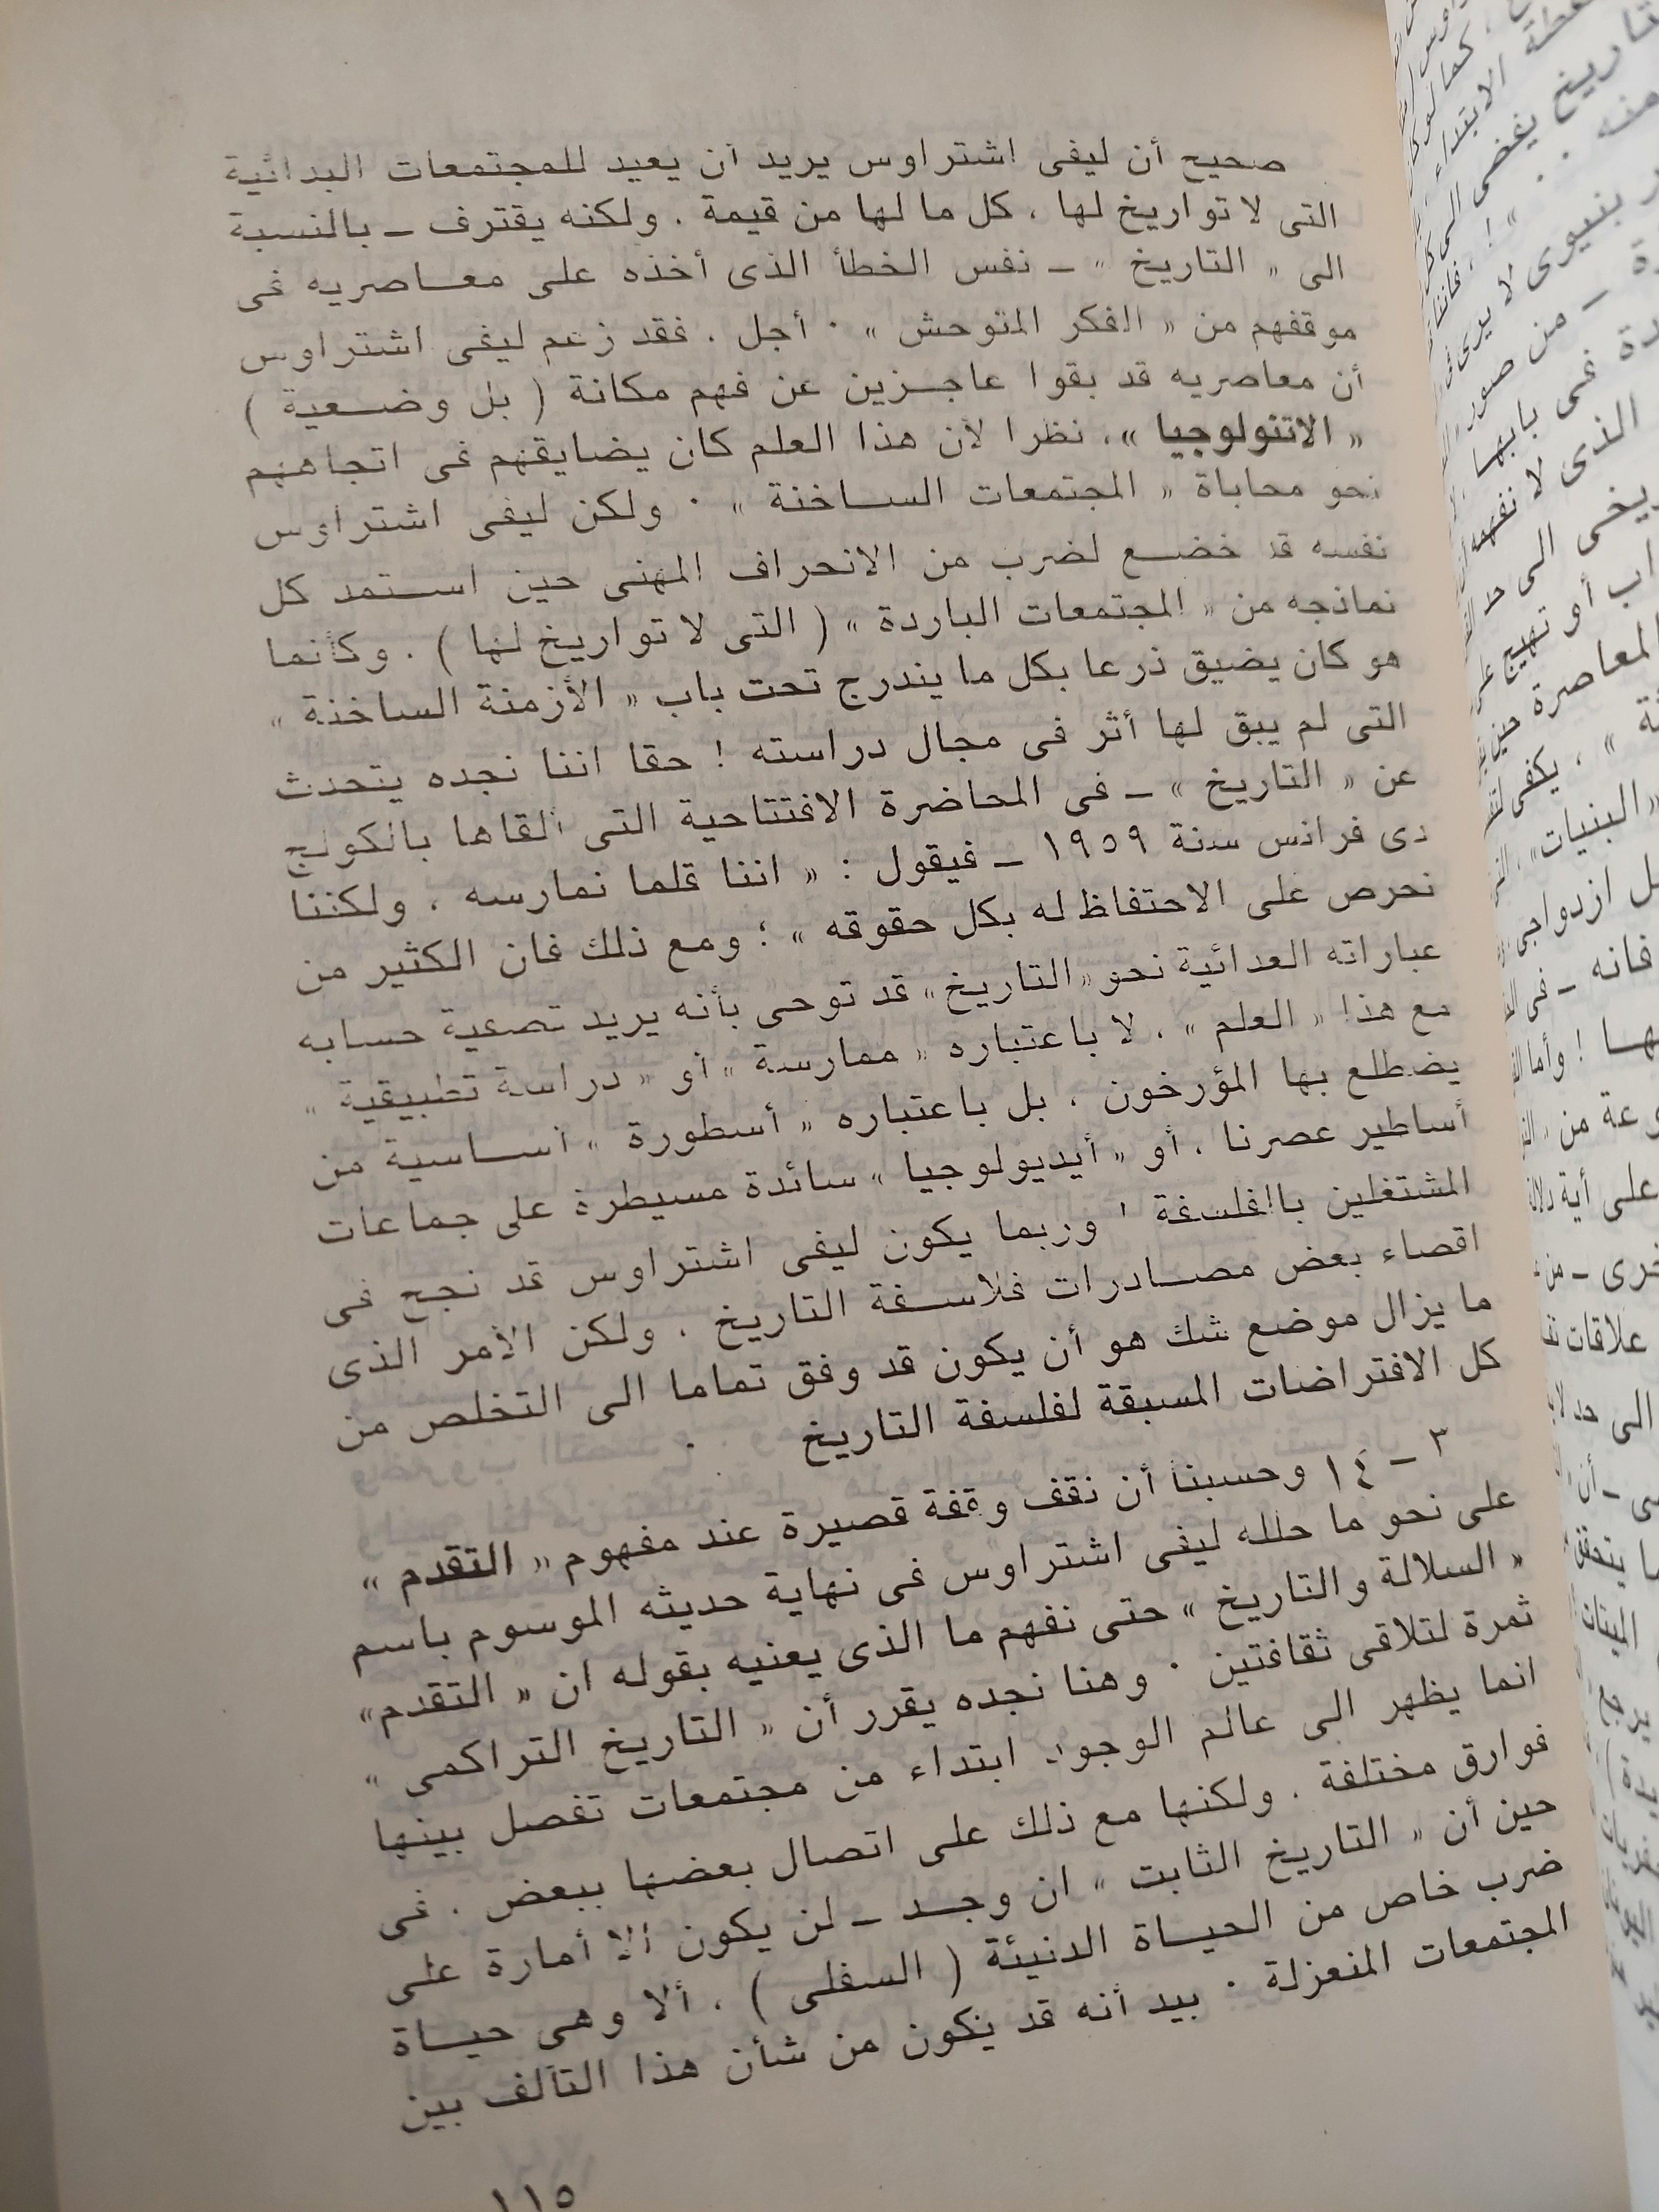 صحيح أن ليفى اشتراوس يريد أن يعيد للمجتمعات البدائية
التى لا تواريخ لها ، كل ما لها من قيمة ، ولكنه يقترف ــ بالنسبة
الى « التاريخ » ــ نفس الخطأ الذى أخذه على معـاصريه فى
موقفهم من « الفكر المتوحش » . أجل ، فقد زعم ليفى اشتراوس
أن معاصريه قد بقوا عاجـزين عن فهم مكانة ( بل وضـعية )
« الاتنولوجيا » ، نظرا لأن هذا العلم كان يضايقهم فى اتجاههم
نحو محاباة « المجتمعات السـاخنة » . ولكن ليفى اشتراوس
نفسه قد خضـع لضرب من الانحراف المهنى حين اسـتمد كل
نماذجه من « المجتمعات الباردة » ( التى لا تواريخ لها ) ، وكأنما
هو كان يضيق ذرعا بكل ما يندرج تحت باب « الأزمنة الساخنة »
التى لم يبق لها أثر فى مجال دراسته ! حقا اننا نجده يتحدث
عن « التاريخ » ــ فى المحاضرة الافتتاحية التى ألقاها بالكولج
دى فرانس سنة ١٩٥٩ ــ فيقول : « اننا قلما نمارسه ، ولكننا
نحرص على الاحتفاظ له بكل حقوقه » ؛ ومع ذلك فان الكثير من
عباراته العدائية نحو « التاريخ » قد توحى بأنه يريد تصفية حسابه
مع هذا « العلم » ، لا باعتباره « ممارسة » أو « دراسة تطبيقية »
يضطلع بها المؤرخون ، بل باعتباره « أسطورة » أسـاسية من
أساطير عصرنا ، أو « أيديولوجيا » سائدة مسيطرة على جماعات
المشتغلين بالفلسفة ! وربما يكون ليفى اشتراوس قد نجح فى
اقصاء بعض مصـادرات فلاسـفة التاريخ ، ولكن الأمر الذى
ما يزال موضع شك هو أن يكون قد وفق تماما الى التخلص من
كل الافتراضات المسبقة لفلسفة التاريخ .
٣ ــ ١٤ وحسبنا أن نقف وقفة قصيرة عند مفهوم « التقدم »
على نحو ما حلله ليفى اشتراوس فى نهاية حديثه الموسوم باسم
« السلالة والتاريخ » حتى نفهم ما الذى يعنيه بقوله ان « التقدم »
ثمرة لتلاقى ثقافتين . وهنا نجده يقرر أن « التاريخ التراكمى »
انما يظهر الى عالم الوجود ابتداء من مجتمعات تفصل بينها
فوارق مختلفة ، ولكنها مع ذلك على اتصال بعضها ببعض ، فى
حين أن « التاريخ الثابت » ان وجـد ــ لن يكون الا أمارة على
ضرب خاص من الحيـاة الدنيئة ( السفلى ) ، ألا وهى حيـاة
المجتمعات المنعزلة . بيد أنه قد يكون من شأن هذا التآلف بين
١١٥